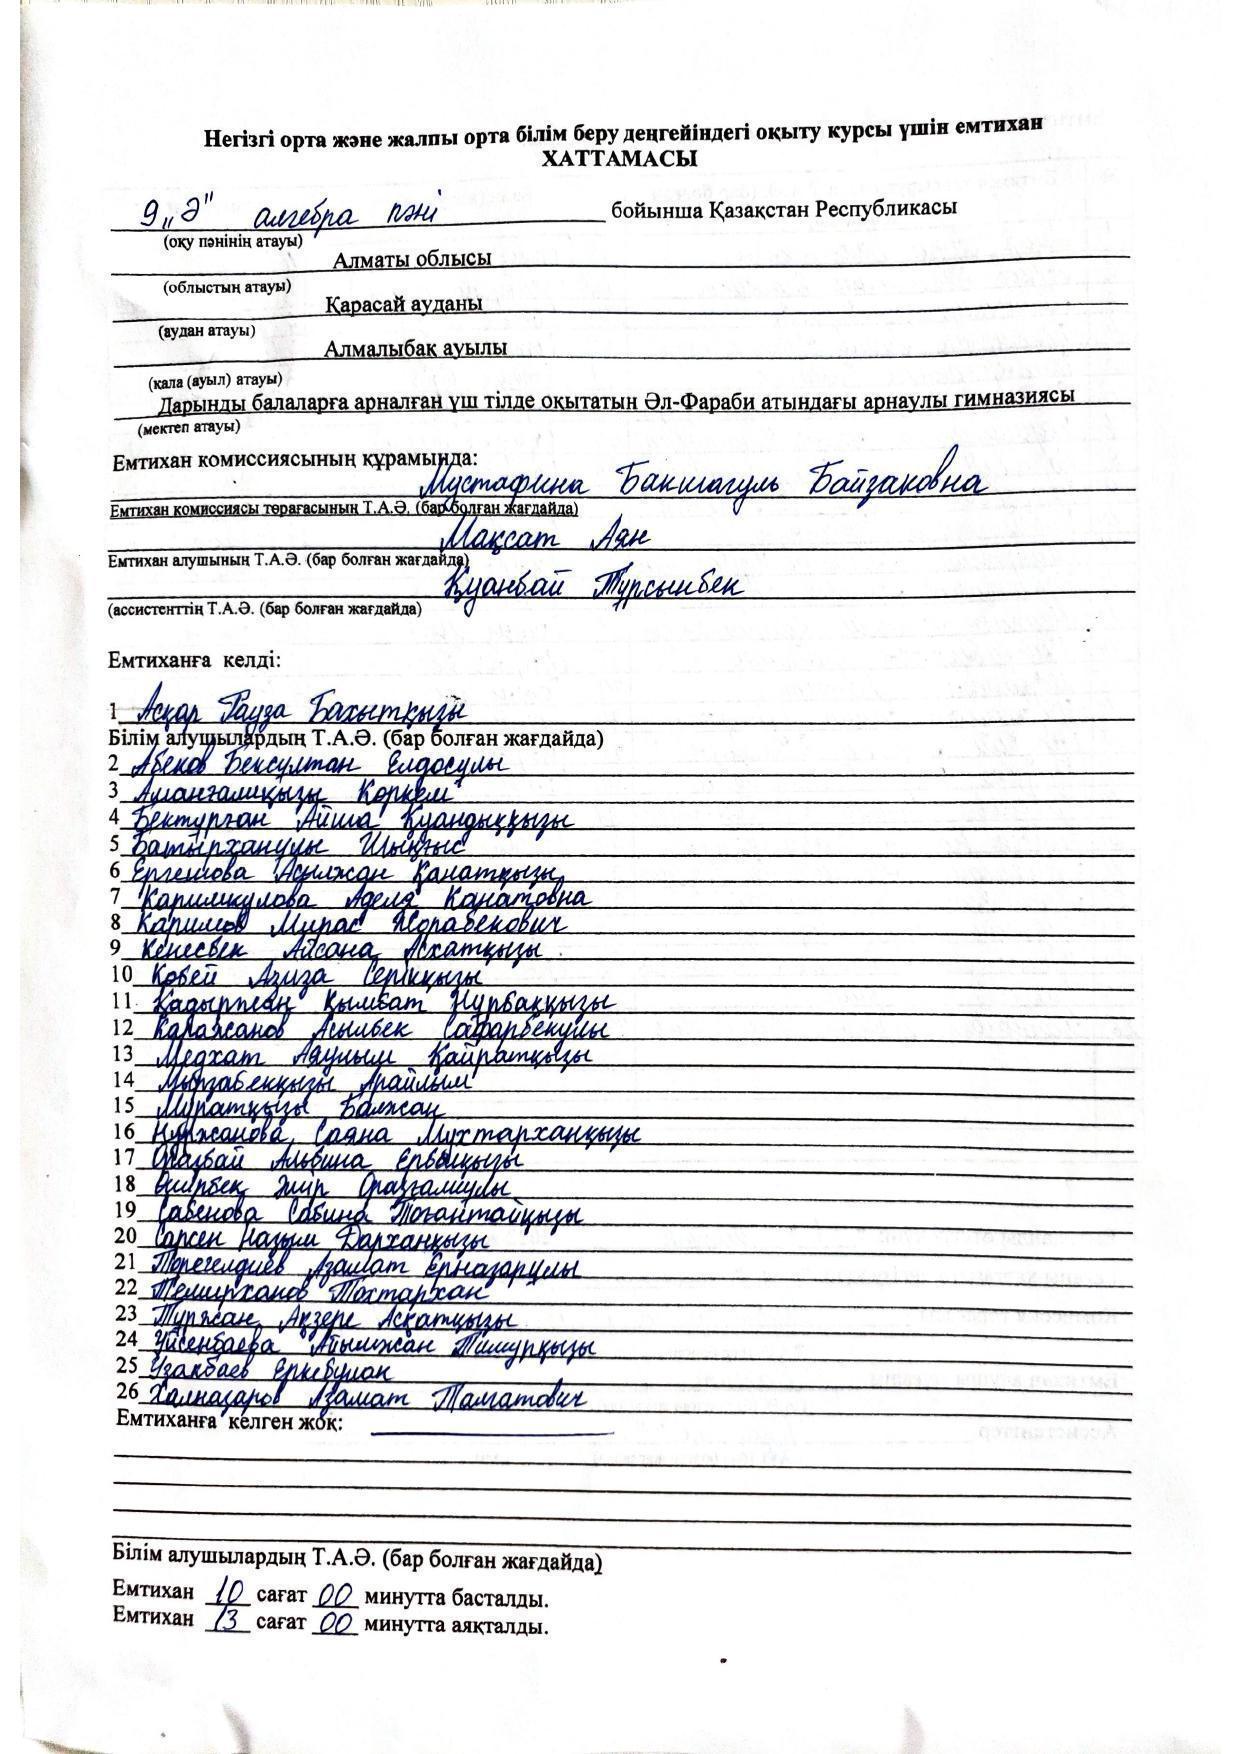 Негізгі орта және жалпы орта білім беру деңгейіндегі оқыту курсы үшін емтихан
ХАТТАМАСЫ
9 „Ә" алгебра пәні бойынша Қазақстан Республикасы
(оқу пәнінің атауы)
Алматы облысы
(облыстың атауы)
Қарасай ауданы
(аудан атауы)
Алмалыбақ ауылы
(қала (ауыл) атауы)
Дарынды балаларға арналған үш тілде оқытатын Әл-Фараби атындағы арнаулы гимназиясы
(мектеп атауы)
Емтихан комиссиясының құрамында:
Мустафина Бакшагуль Байзаковна
Емтихан комиссиясы төрағасының Т.А.Ә. (бар болған жағдайда)
Мақсат Аян
Емтихан алушының Т.А.Ә. (бар болған жағдайда)
Қуанбай Тұрсынбек
(ассистенттің Т.А.Ә. (бар болған жағдайда)
Емтиханға келді:
1 Асқар Рауза Бахытқызы
Білім алушылардың Т.А.Ә. (бар болған жағдайда)
2 Абеков Бексұлтан Елдосұлы
3 Аманғалиқызы Көркем
4 Бектұрған Айша Қуандыққызы
5 Батырханұлы Шыңғыс
6 Ергешова Асылжан Қанатқызы
7 Каримкулова Аделя Канатовна
8 Каримов Мирас Жорабекович
9 Кеңесбек Айсана Асхатқызы
10 Көбей Азиза Серікқызы
11 Қадыржан Қымбат Нұрбаққызы
12 Қалжанов Асылбек Сафарбекұлы
13 Медхат Аяулым Қайратқызы
14 Мырзабекқызы Арайлым
15 Мұратқызы Балжан
16 Нұржанова Саяна Мұхтарханқызы
17 Оразбай Альбина Ерболқызы
18 Өмірбек Әмір Оразғалиұлы
19 Сабенова Сабина Тоғантайқызы
20 Сәрсен Назым Дарханқызы
21 Төрегелдиев Азамат Ерназарұлы
22 Темирханов Тохтархан
23 Тұржан Ақзере Асқатқызы
24 Үйсенбаева Айымжан Тимурқызы
25 Узакбаев Еркебұлан
26 Халназаров Азамат Талгатович
Емтиханға келген жоқ:
Білім алушылардың Т.А.Ә. (бар болған жағдайда)
Емтихан 10 сағат 00 минутта басталды.
Емтихан 13 сағат 00 минутта аяқталды.